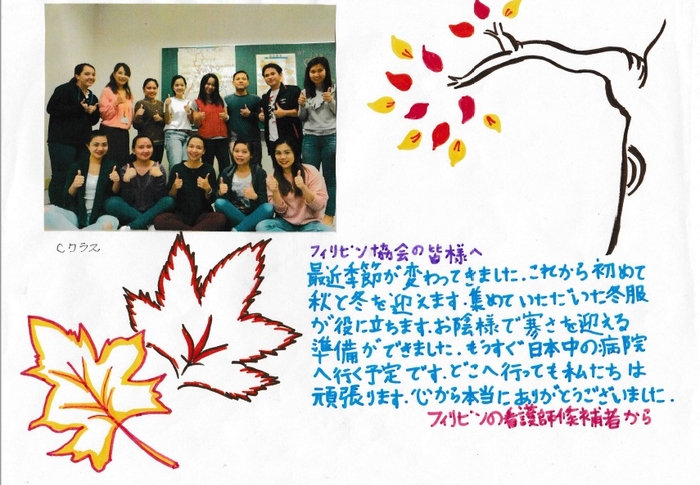 Cクラス
フィリピン協会の皆様へ
最近季節が変わってきました.これから初めて
秋と冬を迎えます.集めていただいた冬服
が役に立ちます.お陰様で寒さを迎える
準備ができました.もうすぐ日本中の病院
へ行く予定です.どこへ行っても私たちは
頑張ります.心から本当にありがとうございました.
フィリピンの看護師候補者から